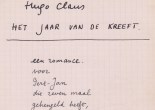 Hugo Claus
HET JAAR VAN DE KREEFT
een romance
voor
Gert-Jan
die zeven maal
geheugeld heeft,